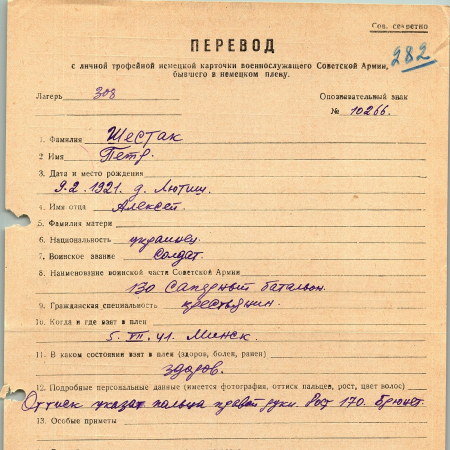 Сов. секретно
ПЕРЕВОД
282
с личной трофейной немецкой карточки военнослужащего Советской Армии,
бывшего в немецком плену.
Лагерь 308 Опознавательный знак
№ 10266.
1. Фамилия Шестак
2 Имя Петр.
3. Дата и место рождения
9.2.1921. д. Лютиш.
4. Имя отца Алексей.
5. Фамилия матери
6. Национальность украинец.
7. Воинское звание солдат.
8. Наименование воинской части Советской Армии
130 Саперный батальон.
9. Гражданская специальность крестьянин.
10. Когда и где взят в плен
5. VII. 41. Минск.
11. В каком состоянии взят в плен (здоров, болен, ранен)
здоров.
12. Подробные персональные данные (имеется фотография, оттиск пальцев, рост, цвет волос)
Оттиск указат пальца правой руки. Рост 170. Брюнет.
13. Особые приметы